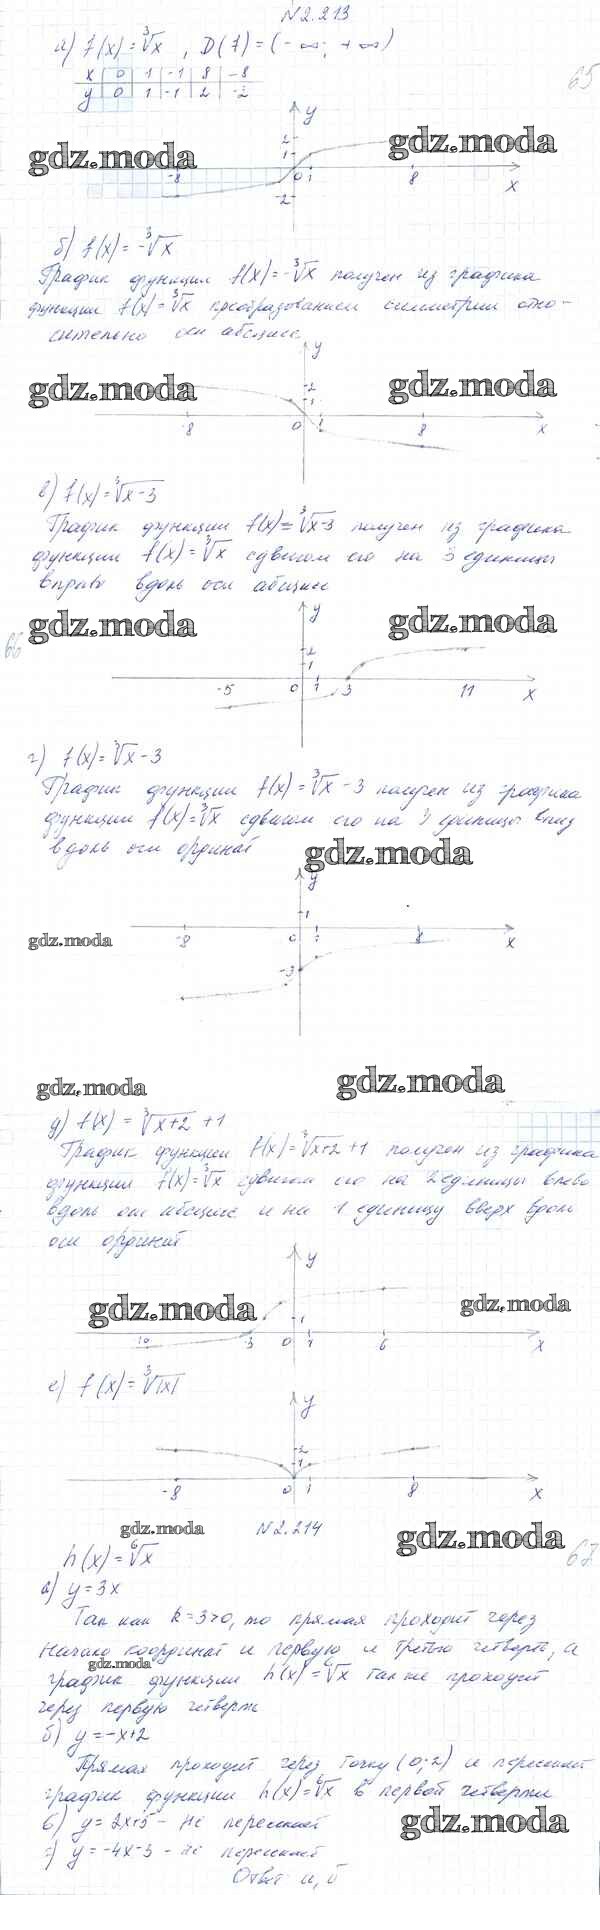 N 2.213
а) f(x) = ∛x , D(f) = (-∞; +∞)
65
x 0 1 -1 8 -8
y 0 1 -1 2 -2
gdz.moda
gdz.moda
y
2
1
-8 0 1 8 x
-2
б) f(x) = -∛x
График функции f(x) = -∛x получен из графика
функции f(x) = ∛x преобразованием симметрии отно-
сительно оси абсцисс
gdz.moda
gdz.moda
y
2
1
-8 0 1 8 x
в) f(x) = ∛x-3
График функции f(x) = ∛x-3 получен из графика
функции f(x) = ∛x сдвигом его на 3 единицы
вправо вдоль оси абсцисс
gdz.moda
gdz.moda
66
y
2
1
-5 0 1 3 11 x
г) f(x) = ∛x - 3
График функции f(x) = ∛x - 3 получен из графика
функции f(x) = ∛x сдвигом его на 3 единицы вниз
вдоль оси ординат
gdz.moda
y
1
gdz.moda
-8 0 1 8 x
-3
gdz.moda
gdz.moda
д) f(x) = ∛x+2 + 1
График функции f(x) = ∛x+2 + 1 получен из графика
функции f(x) = ∛x сдвигом его на 2 единицы влево
вдоль оси абсцисс и на 1 единицу вверх вдоль
оси ординат
y
gdz.moda
gdz.moda
1
-10 -3 0 1 6 x
е) f(x) = ∛|x|
y
2
1
-8 0 1 8 x
gdz.moda
N 2.214
gdz.moda
67
h(x) = ⁶√x
а) y = 3x
Так как k = 3 > 0, то прямая проходит через
начало координат и первую и третью четверть, а
gdz.moda
график функции h(x) = ⁶√x также проходит
через первую четверть
б) y = -x+2
Прямая проходит через точку (0; 2) и пересекает
график функции h(x) = ⁶√x в первой четверти
в) y = 2x+5 - не пересекает
gdz.moda
г) y = -4x-3 - не пересекает
Ответ: а, б